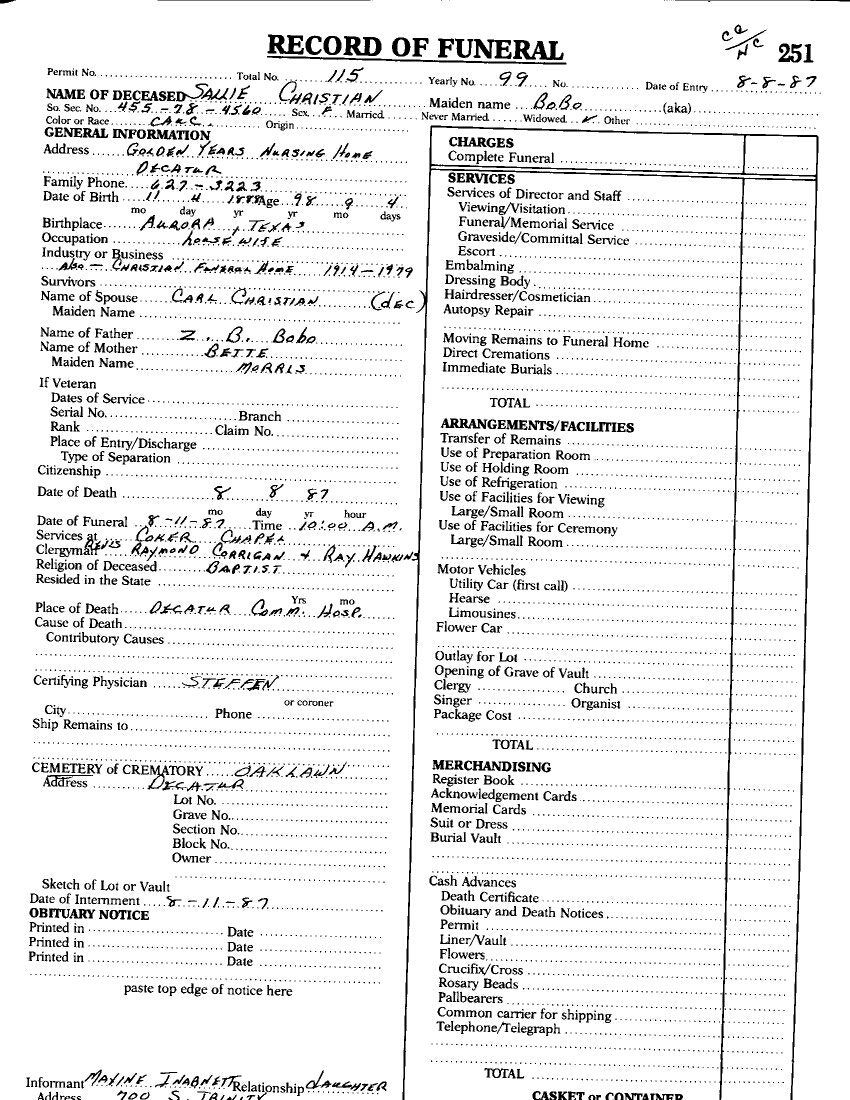 RECORD OF FUNERAL
251
Permit No. Total No. 115 Yearly No. 99 No. Date of Entry 8-8-87
NAME OF DECEASED SALLIE CHRISTIAN Maiden name BOBO (aka)
So. Sec. No. 455-78-4560 Sex F Married Never Married Widowed ✓ Other
Color or Race CAKC. Origin
GENERAL INFORMATION
Address GOLDEN YEARS NURSING HOME
DECATUR
Family Phone 627-3223
Date of Birth 11 4 1888 Age 98 9 4
mo day yr yr mo days
Birthplace AURORA, TEXAS
Occupation HOUSEWIFE
Industry or Business
Also - CHRISTIAN FUNERAL HOME 1914-1979
Survivors
Name of Spouse CARL CHRISTIAN (dec)
Maiden Name
Name of Father Z. B. Bobo
Name of Mother BETTE
Maiden Name MORRIS
If Veteran
Dates of Service
Serial No. Branch
Rank Claim No.
Place of Entry/Discharge
Type of Separation
Citizenship
Date of Death 8 8 87
mo day yr hour
Date of Funeral 8-11-87 Time 10:00 A.M.
Services at COKER CHAPEL
Clergyman REVS RAYMOND CORRIGAN + RAY HAWKINS
Religion of Deceased BAPTIST
Resided in the State
Yrs mo
Place of Death DECATUR COMM. HOSP.
Cause of Death
Contributory Causes
Certifying Physician STEFFEN
or coroner
City Phone
Ship Remains to
CEMETERY of CREMATORY OAKLAWN
Address DECATUR
Lot No.
Grave No.
Section No.
Block No.
Owner
Sketch of Lot or Vault
Date of Internment 8-11-87
OBITUARY NOTICE
Printed in Date
Printed in Date
Printed in Date
paste top edge of notice here
Informant MAXINE INABNETT Relationship DAUGHTER
Address 700 S. TRINITY
CHARGES
Complete Funeral
SERVICES
Services of Director and Staff
Viewing/Visitation
Funeral/Memorial Service
Graveside/Committal Service
Escort
Embalming
Dressing Body
Hairdresser/Cosmetician
Autopsy Repair
Moving Remains to Funeral Home
Direct Cremations
Immediate Burials
TOTAL
ARRANGEMENTS/FACILITIES
Transfer of Remains
Use of Preparation Room
Use of Holding Room
Use of Refrigeration
Use of Facilities for Viewing
Large/Small Room
Use of Facilities for Ceremony
Large/Small Room
Motor Vehicles
Utility Car (first call)
Hearse
Limousines
Flower Car
Outlay for Lot
Opening of Grave of Vault
Clergy Church
Singer Organist
Package Cost
TOTAL
MERCHANDISING
Register Book
Acknowledgement Cards
Memorial Cards
Suit or Dress
Burial Vault
Cash Advances
Death Certificate
Obituary and Death Notices
Permit
Liner/Vault
Flowers
Crucifix/Cross
Rosary Beads
Pallbearers
Common carrier for shipping
Telephone/Telegraph
TOTAL
CASKET or CONTAINER